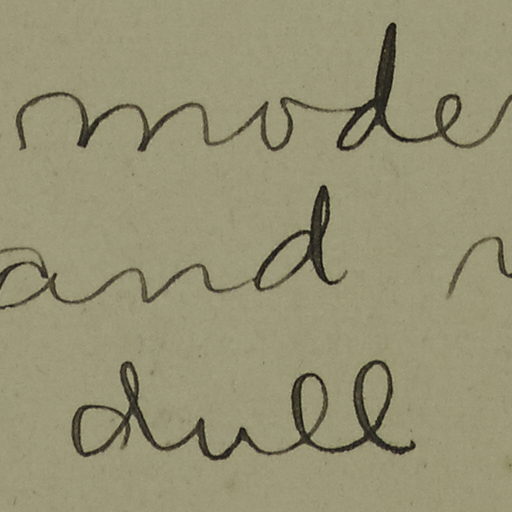 mode
and
dull